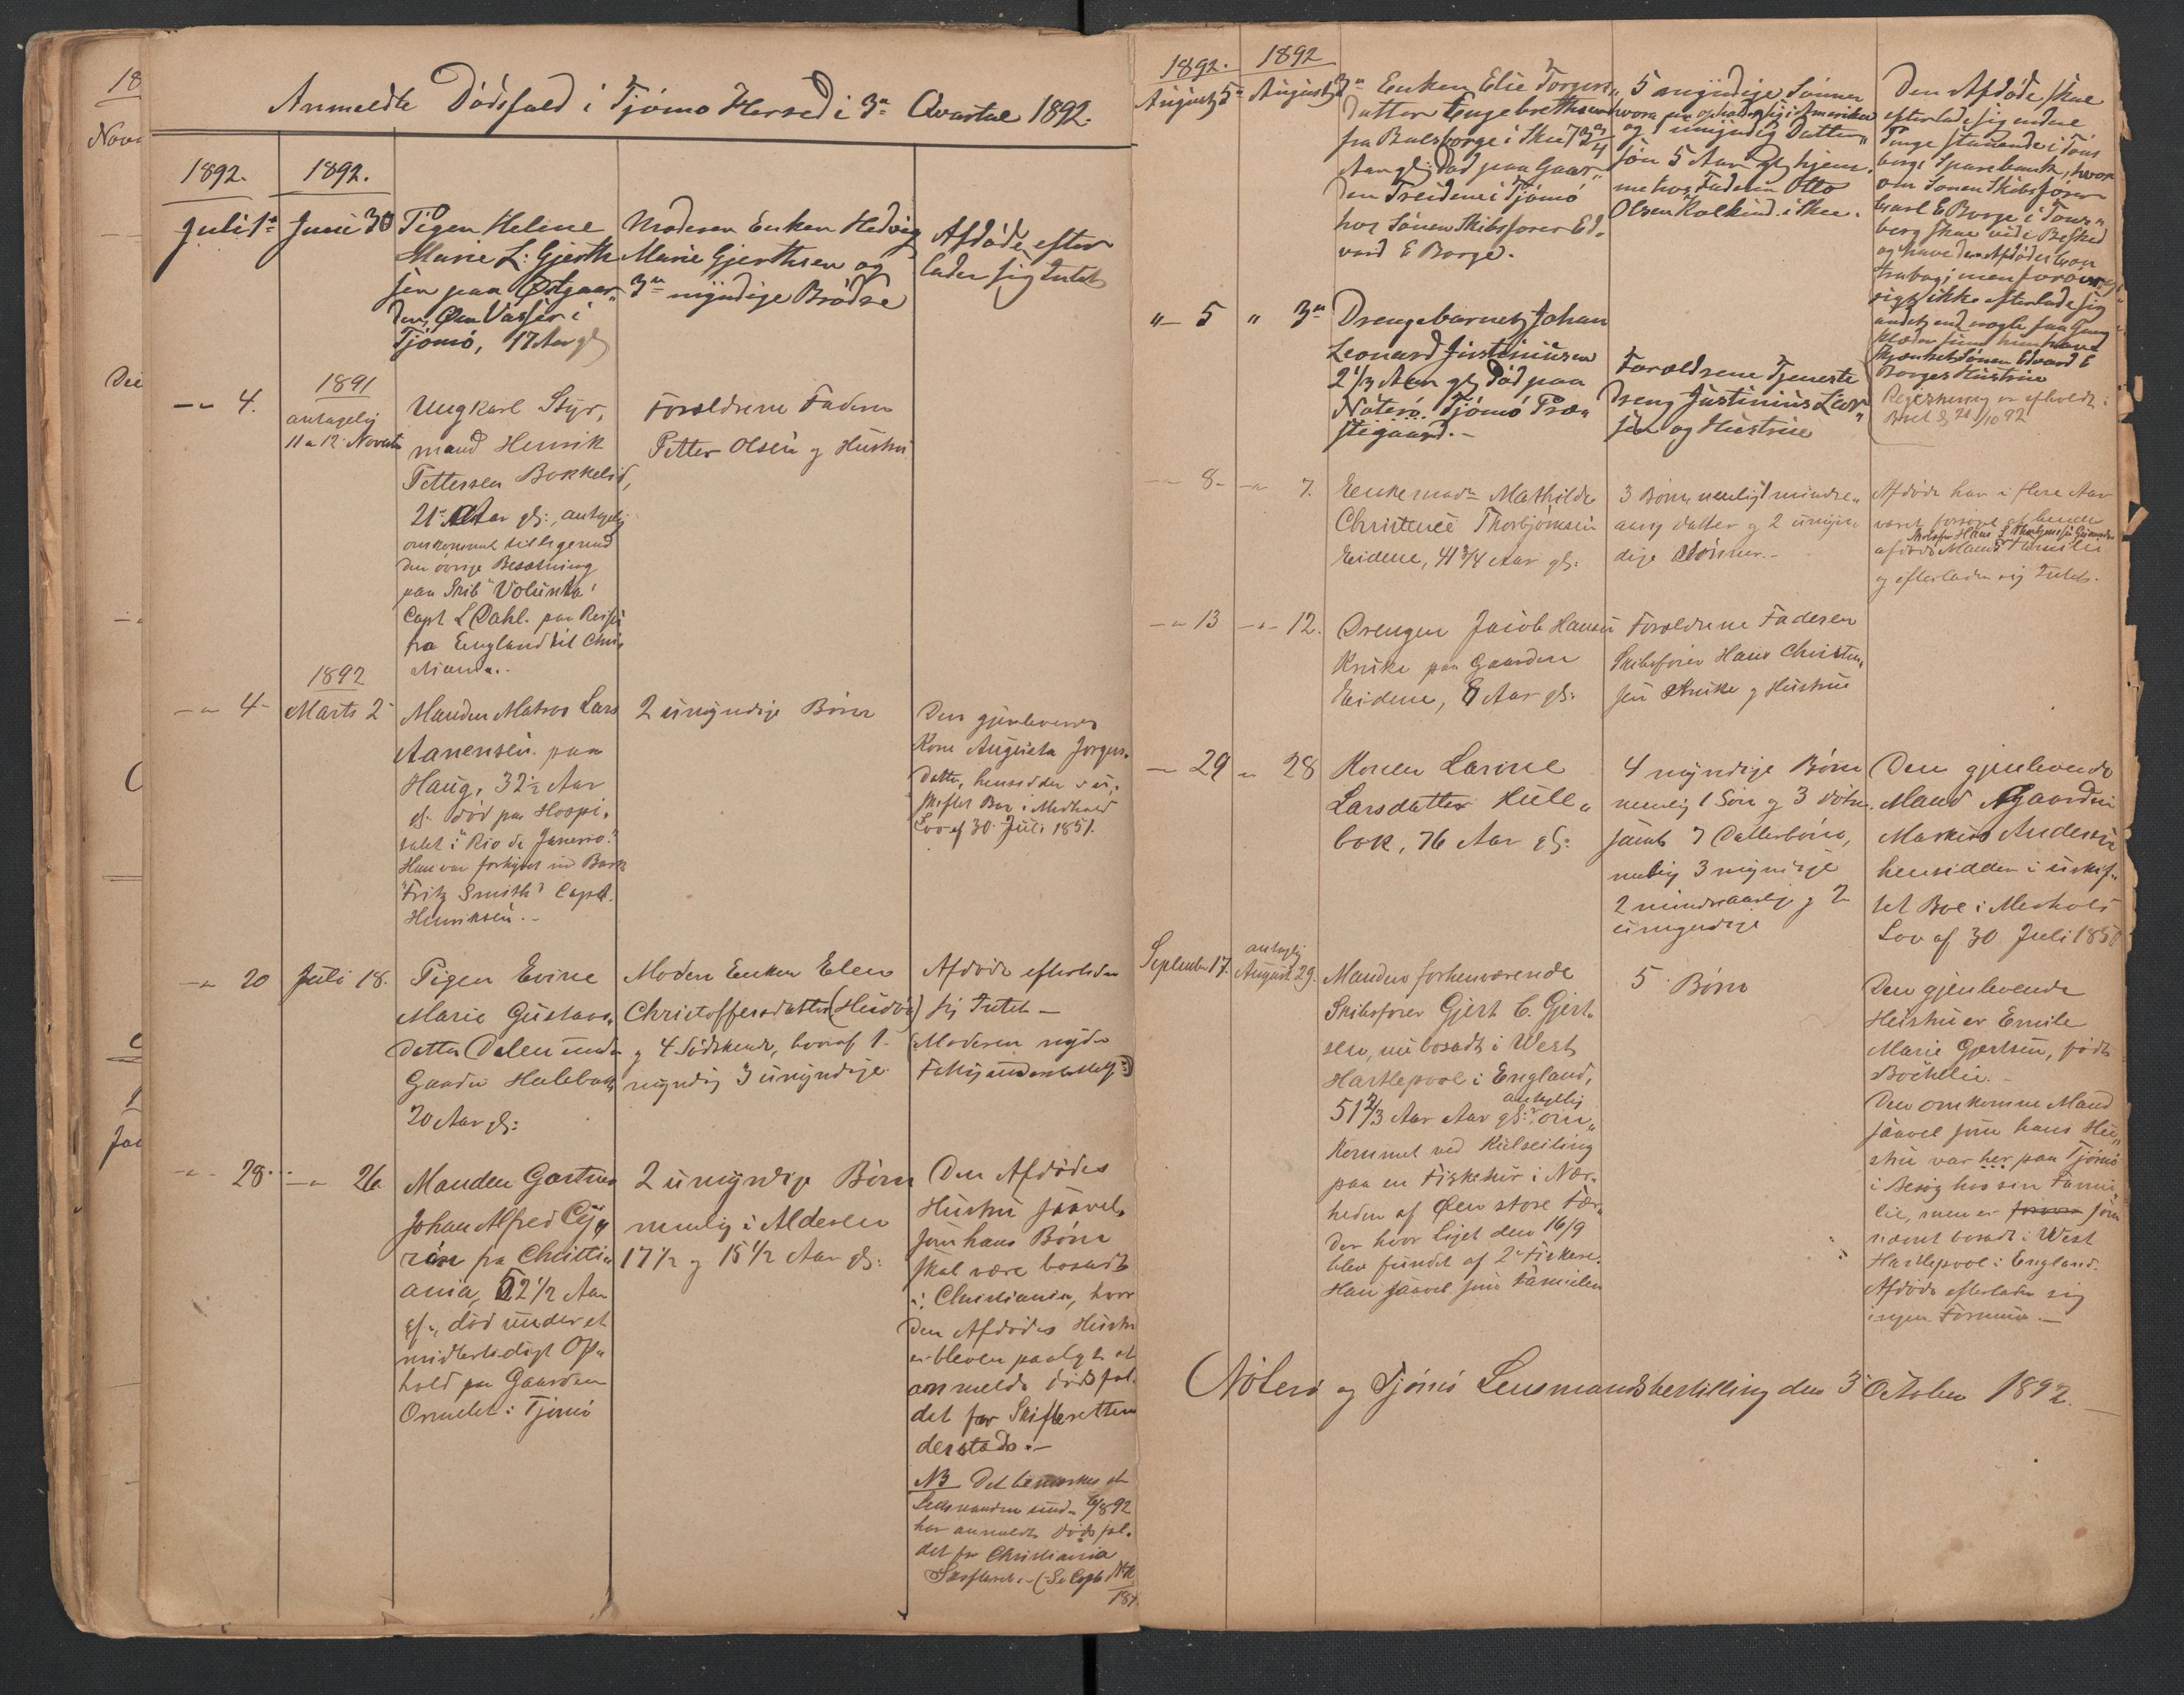 Anmeldte Dödsfald i Tjömö Herred i 3die Qvartal 1892.
1892.
1892.
Juli 1ste
Juni 30
Pigen Helene
Marie L: Gjerth
sen paa Østgaar„
den, Øen Vasser i
Tjömö, 17 Aar gl
Moderen Enken Hedvig
Marie Gjerthsen og
3 myndige Brödre
Afdöde efter
lader sig Intet
—„— 4.
1891
antagelig
11 a 12 Novembr
Ungkarl Styr„
mand Henrik
Pettersen Bokkelid,
21 Aar gl:, antagelig
omkommet tilligemed
den övrige Besætning
paa Skib "Volunta"
Capt L Dahl. paa Reise
fra England til Chri„
stiania..
Forældrene Faderen
Petter Olsen og Hustru
—„— 4
1892
Marts 2
Manden Matros Lars
Aanensen paa
Haug, 32½ Aar
gl. död paa Hospi„
talet i "Rio de Janerio."
Han var forhyret med Bark
"Fritz Smith" Capt.
Henriksen.—
2 umyndige Börn
Den gjenlevende
Kone Augusta Jorgens„
datter, hensidder i u„
skiftet Bo i Medhold
Lov af 30 Juli 1851.
—„ 20
Juli 18.
Pigen Evine
Marie Gustavs„
datter Dalen under
Gaarden Hulebak,
20 Aar gl:
Moderen Enken Elen
Christoffersdatter
og 4 Södskende, hvoraf 1
myndig 3 umyndige
Afdöde efterlader
sig Intet —
(Moderen nyder
—„— 28
—„ 26
Manden Gartner
Johan Alfred
fra Christi„
ania, 52½ Aar
gl., död under et
midlertidigt Op„
hold paa Gaarden
Ormelet i Tjömö
2 umyndige Börn
nemlig i Alderen
17½ og 15½ Aar gl:
Den Afdödes
Hustru saavel
som hans Börn
skal være bosadt
i Christiania, hvor
den Afdödes Hustru
er bleven paalagt at
anmelde Dödsfal„
det for Skifteretten
dersteds.—
NB Det bemærkes at
Lensmanden under 6/8 92
har anmeldt dödsfal„
det for Christiania
Skifteret.— (Se Copb
1892.
1892
August 5te
August 3die
Enken Elie Torgers„
datter Engebrethsen
fra Bulsborge i Skee 73 3/4
Aar gl: Död paa Gaar„
den Treidene i Tjömö
hos Sönnen Skibsförer Ed„
vard E Borge.
5 myndige Sönner
hvoraf en opholder sig i Amerika
og 1 umyndig Datter„
sön 5 Aar gl hjem„
me hos Faderen Otto
Olsen Kolkind i Skee.
Den Afdöde skal
efterlade sig endel
Penge staaende i Töns
bergs Sparebank, hvor
om Sönnen Skibsförer
Carl E Borge i Töns„
berg skal vide Besked
og have den Afdödes Con
trabog, men forövrigt
siges ikke efterlade sig
andet end nogle faa Gang
klæder som hun have
skjænket Sönnen Edvard E
Borges Hustrue
„— 5
„ 3die
Drengebarnet Johan
Leonard Justiniusen
2 1/3 Aar gl Död paa
Nöterö. Tjömö Præ„
stegaard.—
Forældrene Tjeneste
dreng Justinius Lar„
sen og Hustrue
—„ 8—
—„ 7.
Enkemadm Mathilde
Christence Thorbjörnsen
Eidene, 41 3/4 Aar gl:
3 Börn nemlig 1 mindre„
aarig datter og 2 umyn„
dige Sönner.—
Afdöde har i flere Aar
været forsörget af hendes
afdöde Mands Familie
og efterlader sig Intet.
—„ 13
—„— 12.
Drengen Jacob Hansen
Kruke paa Gaarden
Eidene, 8 Aar gl:
Forældrene Faderen
Skibsförer Hans Christen„
sen Kruke og Hustrue
—„ 29
„ 28
Konen Larine
Larsdatter Hulle„
bak, 76 Aar gl:
4 myndige Börn
nemlig 1 Sön og 3 dötre,
samt 7 Datterbörn,
nemlig 3 myndige
2 mindreaarige og 2
umyndige
Den gjenlevende
Mand Gaardm
Markus Andersen
hensidder i uskif„
tet Boe i Medhold
Lov af 30 Juli 1851
September 17.
antagelig
August 29.
Manden forhenværende
Skibsförer Gjert C. Gjert„
sen, nu bosadt i West
Hartlepool i England,
51 2/3 Aar Aar gl: antagelig om„
kommet ved Kulseiling
paa en Fisketur i Nær„
heden af Øen store Fær„
der hvor Liget den 16/9
blev fundet af 2 Fiskere.
Han saavel som Familien
5 Börn
Den gjenlevende
Hustru er Emile
Marie Gjertsen, födt
Böchlie.—
Den omkomne Mand
saavel som hans Hu„
stru var her paa Tjömö
i Besög hos sin Fami„
lie, men er som
nævnt bosadt i West
Hartlepool i England.
Afdöde efterlader sig
ingen Formue.—
Nöterö og Tjömö Lensmandsbestilling den 3 October 1892.